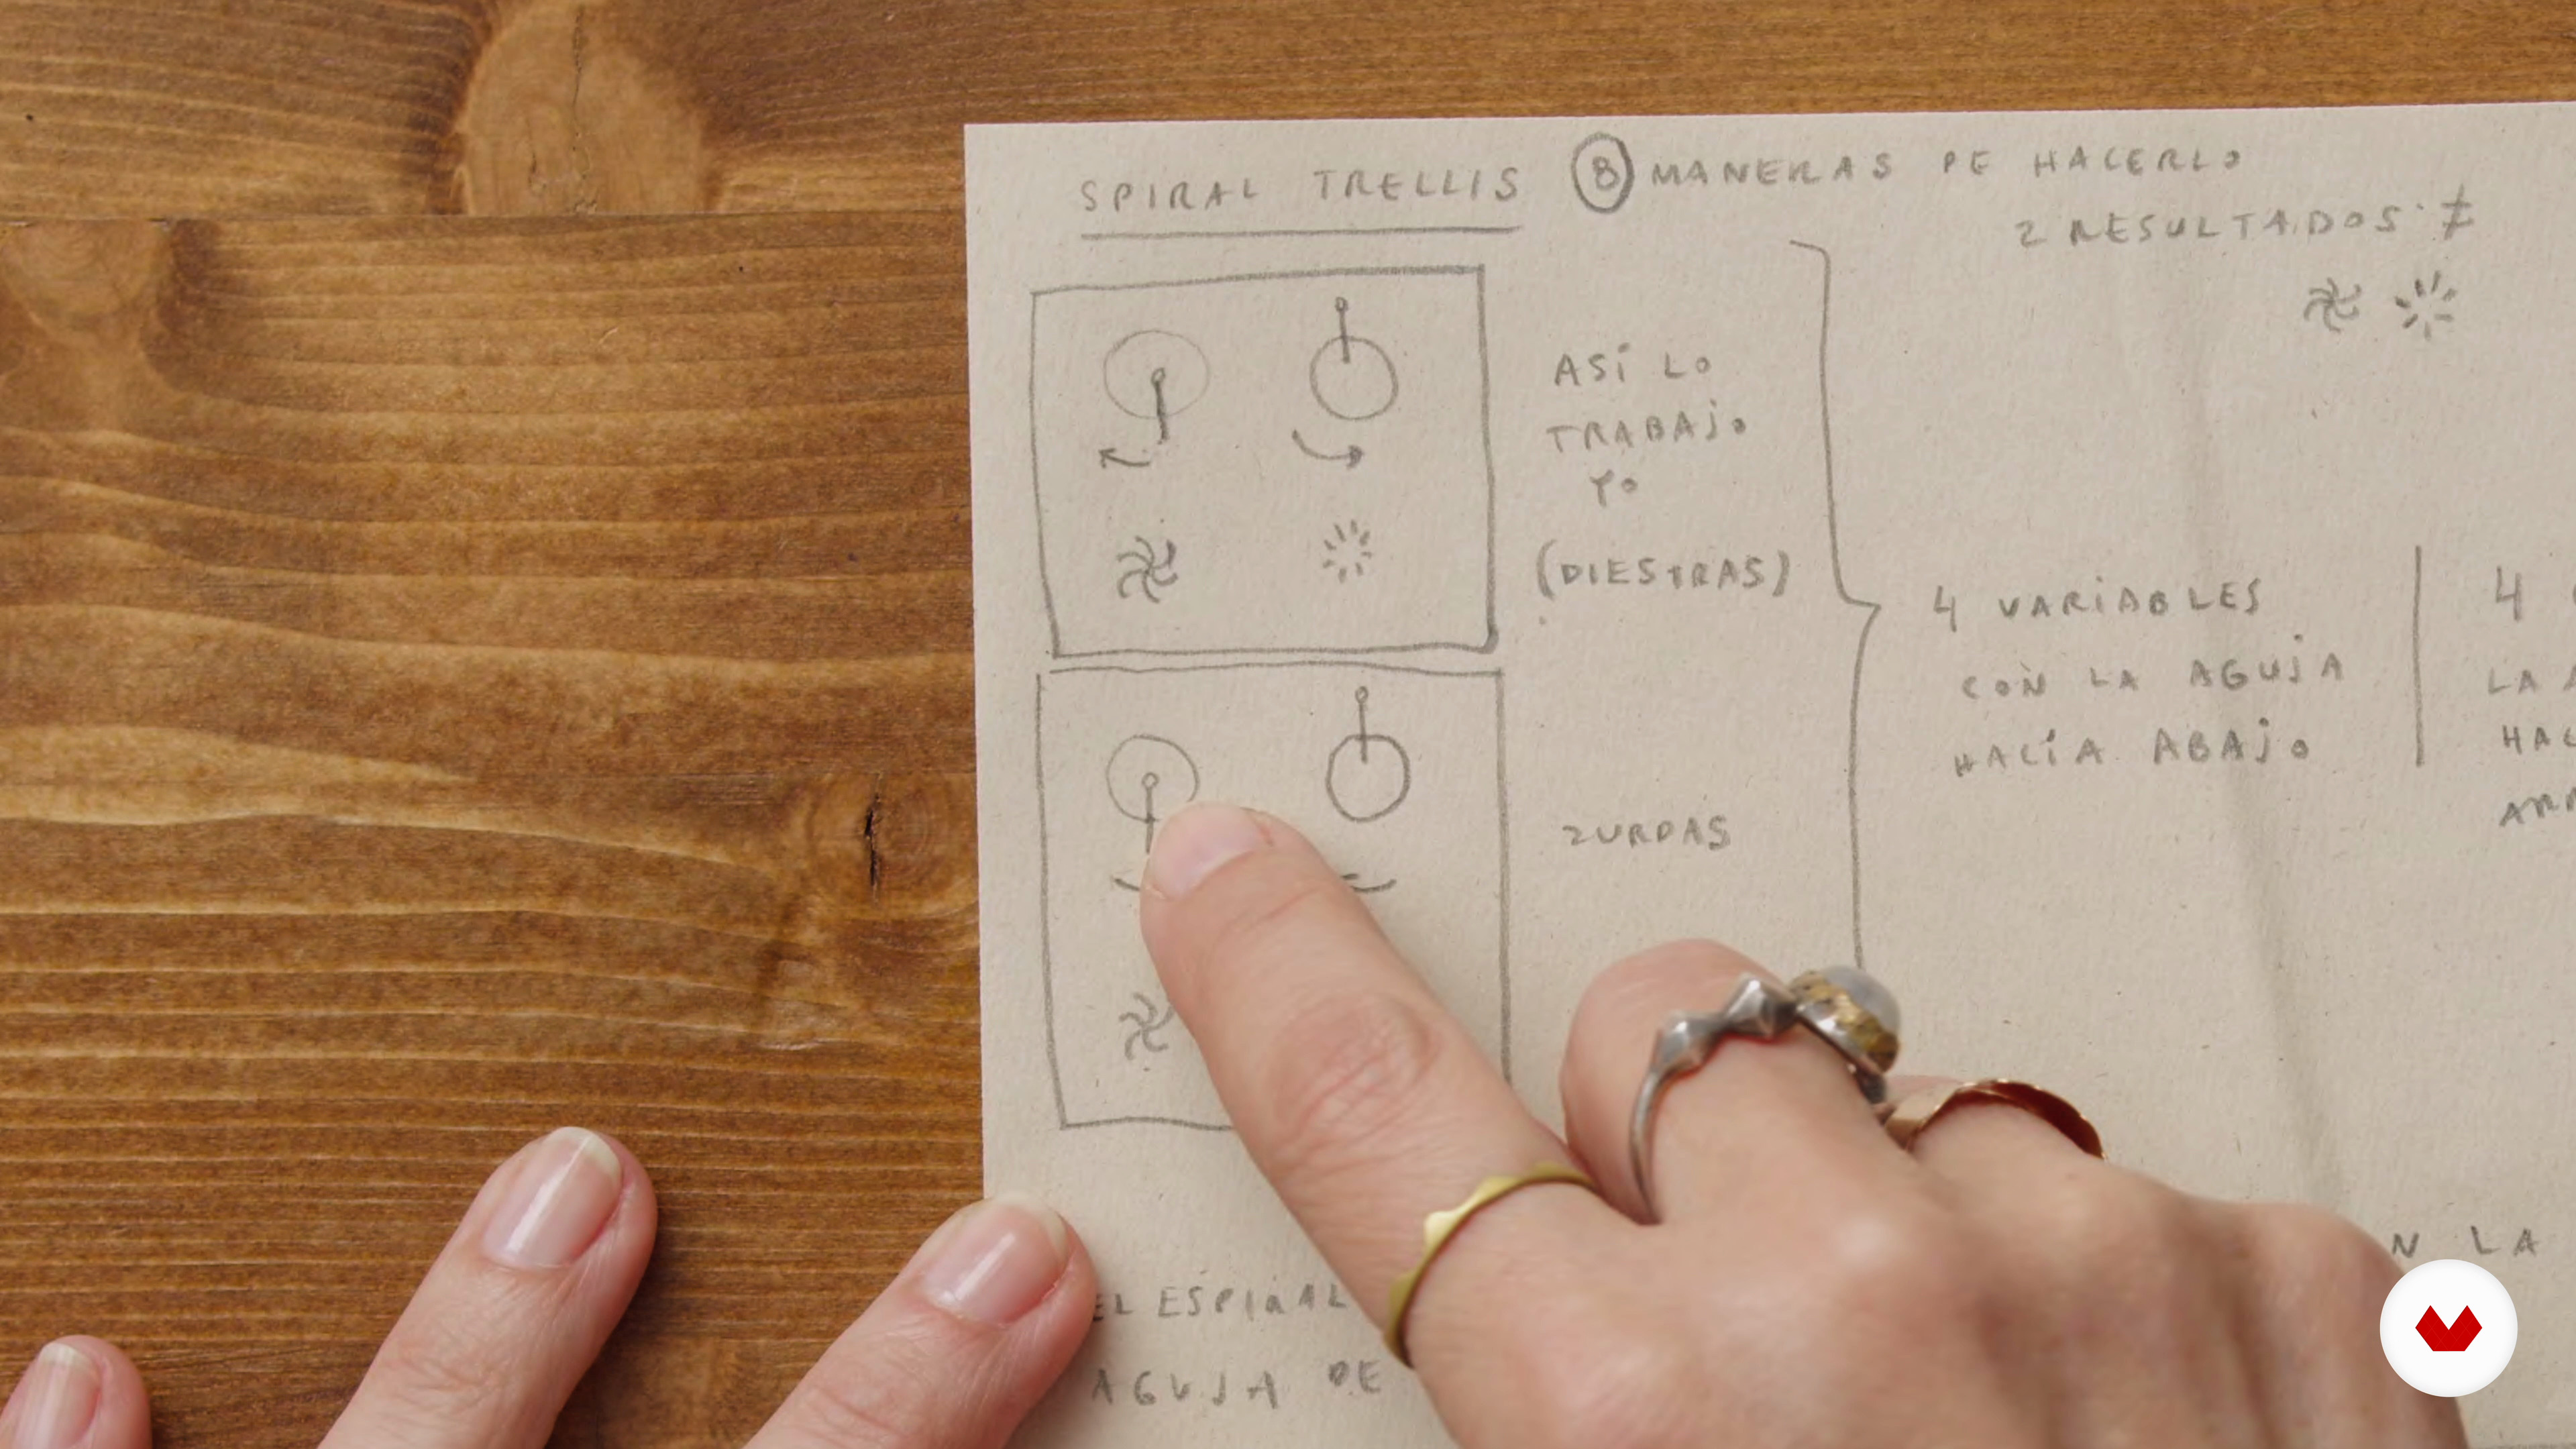 SPIRAL TRELLIS 8 MANERAS DE HACERLO
2 RESULTADOS ≠
ASÍ LO
TRABAJO
YO
(DIESTRAS)
4 VARIABLES
CON LA AGUJA
HACIA ABAJO
4
LA
ZURDAS
N LA
EL ESPIRAL
AGUJA DE